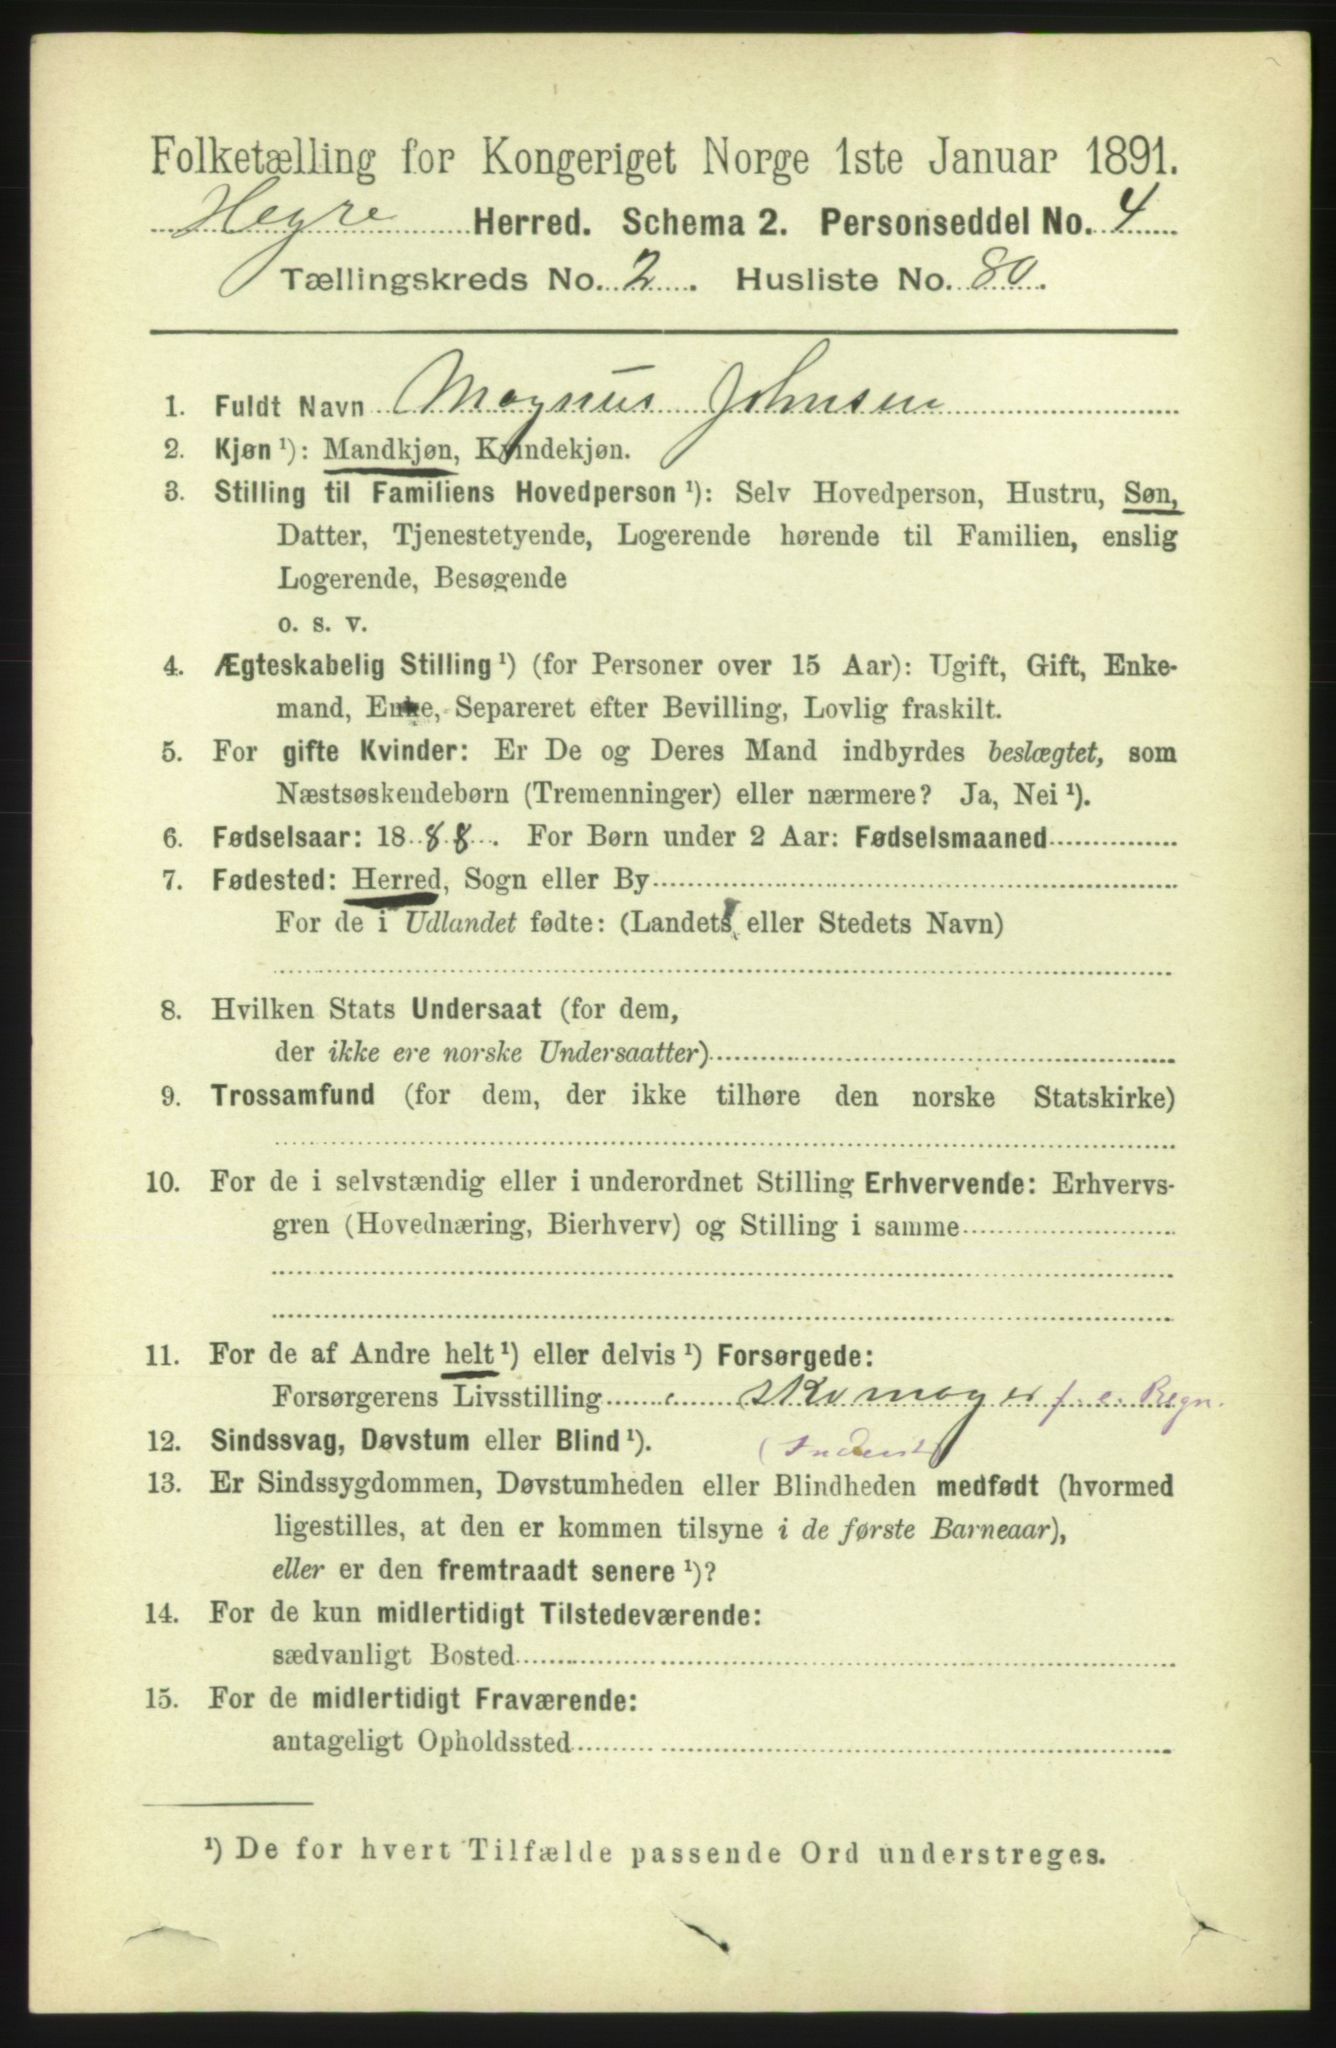 Folketælling for Kongeriget Norge 1ste Januar 1891.
Hegre Herred. Schema 2. Personseddel No. 4
Tællingskreds No. 2. Husliste No. 80.
1. Fuldt Navn Magnus Johnsen
2. Kjøn ¹): Mandkjøn, Kvindekjøn.
3. Stilling til Familiens Hovedperson ¹): Selv Hovedperson, Hustru, Søn,
Datter, Tjenestetyende, Logerende hørende til Familien, enslig
Logerende, Besøgende
o. s. v.
4. Ægteskabelig Stilling ¹) (for Personer over 15 Aar): Ugift, Gift, Enke-
mand, Enke, Separeret efter Bevilling, Lovlig fraskilt.
5. For gifte Kvinder: Er De og Deres Mand indbyrdes beslægtet, som
Næstsøskendebørn (Tremenninger) eller nærmere? Ja, Nei ¹).
6. Fødselsaar: 1888. For Børn under 2 Aar: Fødselsmaaned
7. Fødested: Herred, Sogn eller By
For de i Udlandet fødte: (Landets eller Stedets Navn)
8. Hvilken Stats Undersaat (for dem,
der ikke ere norske Undersaatter)
9. Trossamfund (for dem, der ikke tilhøre den norske Statskirke)
10. For de i selvstændig eller i underordnet Stilling Erhvervende: Erhvervs-
gren (Hovednæring, Bierhverv) og Stilling i samme
11. For de af Andre helt ¹) eller delvis ¹) Forsørgede:
Forsørgerens Livsstilling skomager f. e. Regn.
12. Sindssvag, Døvstum eller Blind ¹).
13. Er Sindssygdommen, Døvstumheden eller Blindheden medfødt (hvormed
ligestilles, at den er kommen tilsyne i de første Barneaar),
eller er den fremtraadt senere ¹)?
14. For de kun midlertidigt Tilstedeværende:
sædvanligt Bosted
15. For de midlertidigt Fraværende:
antageligt Opholdssted
¹) De for hvert Tilfælde passende Ord understreges.